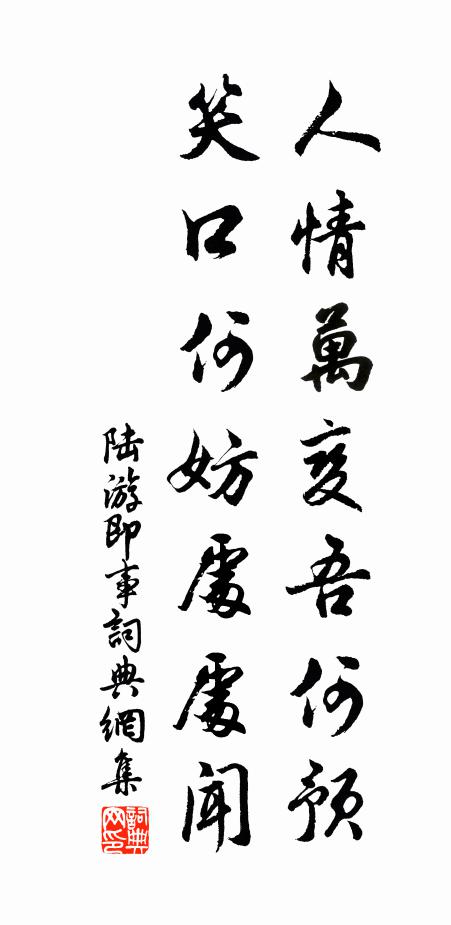 人情萬变吾何預
笑口何妨處處開
陸游即事詞典網集
詞典网印